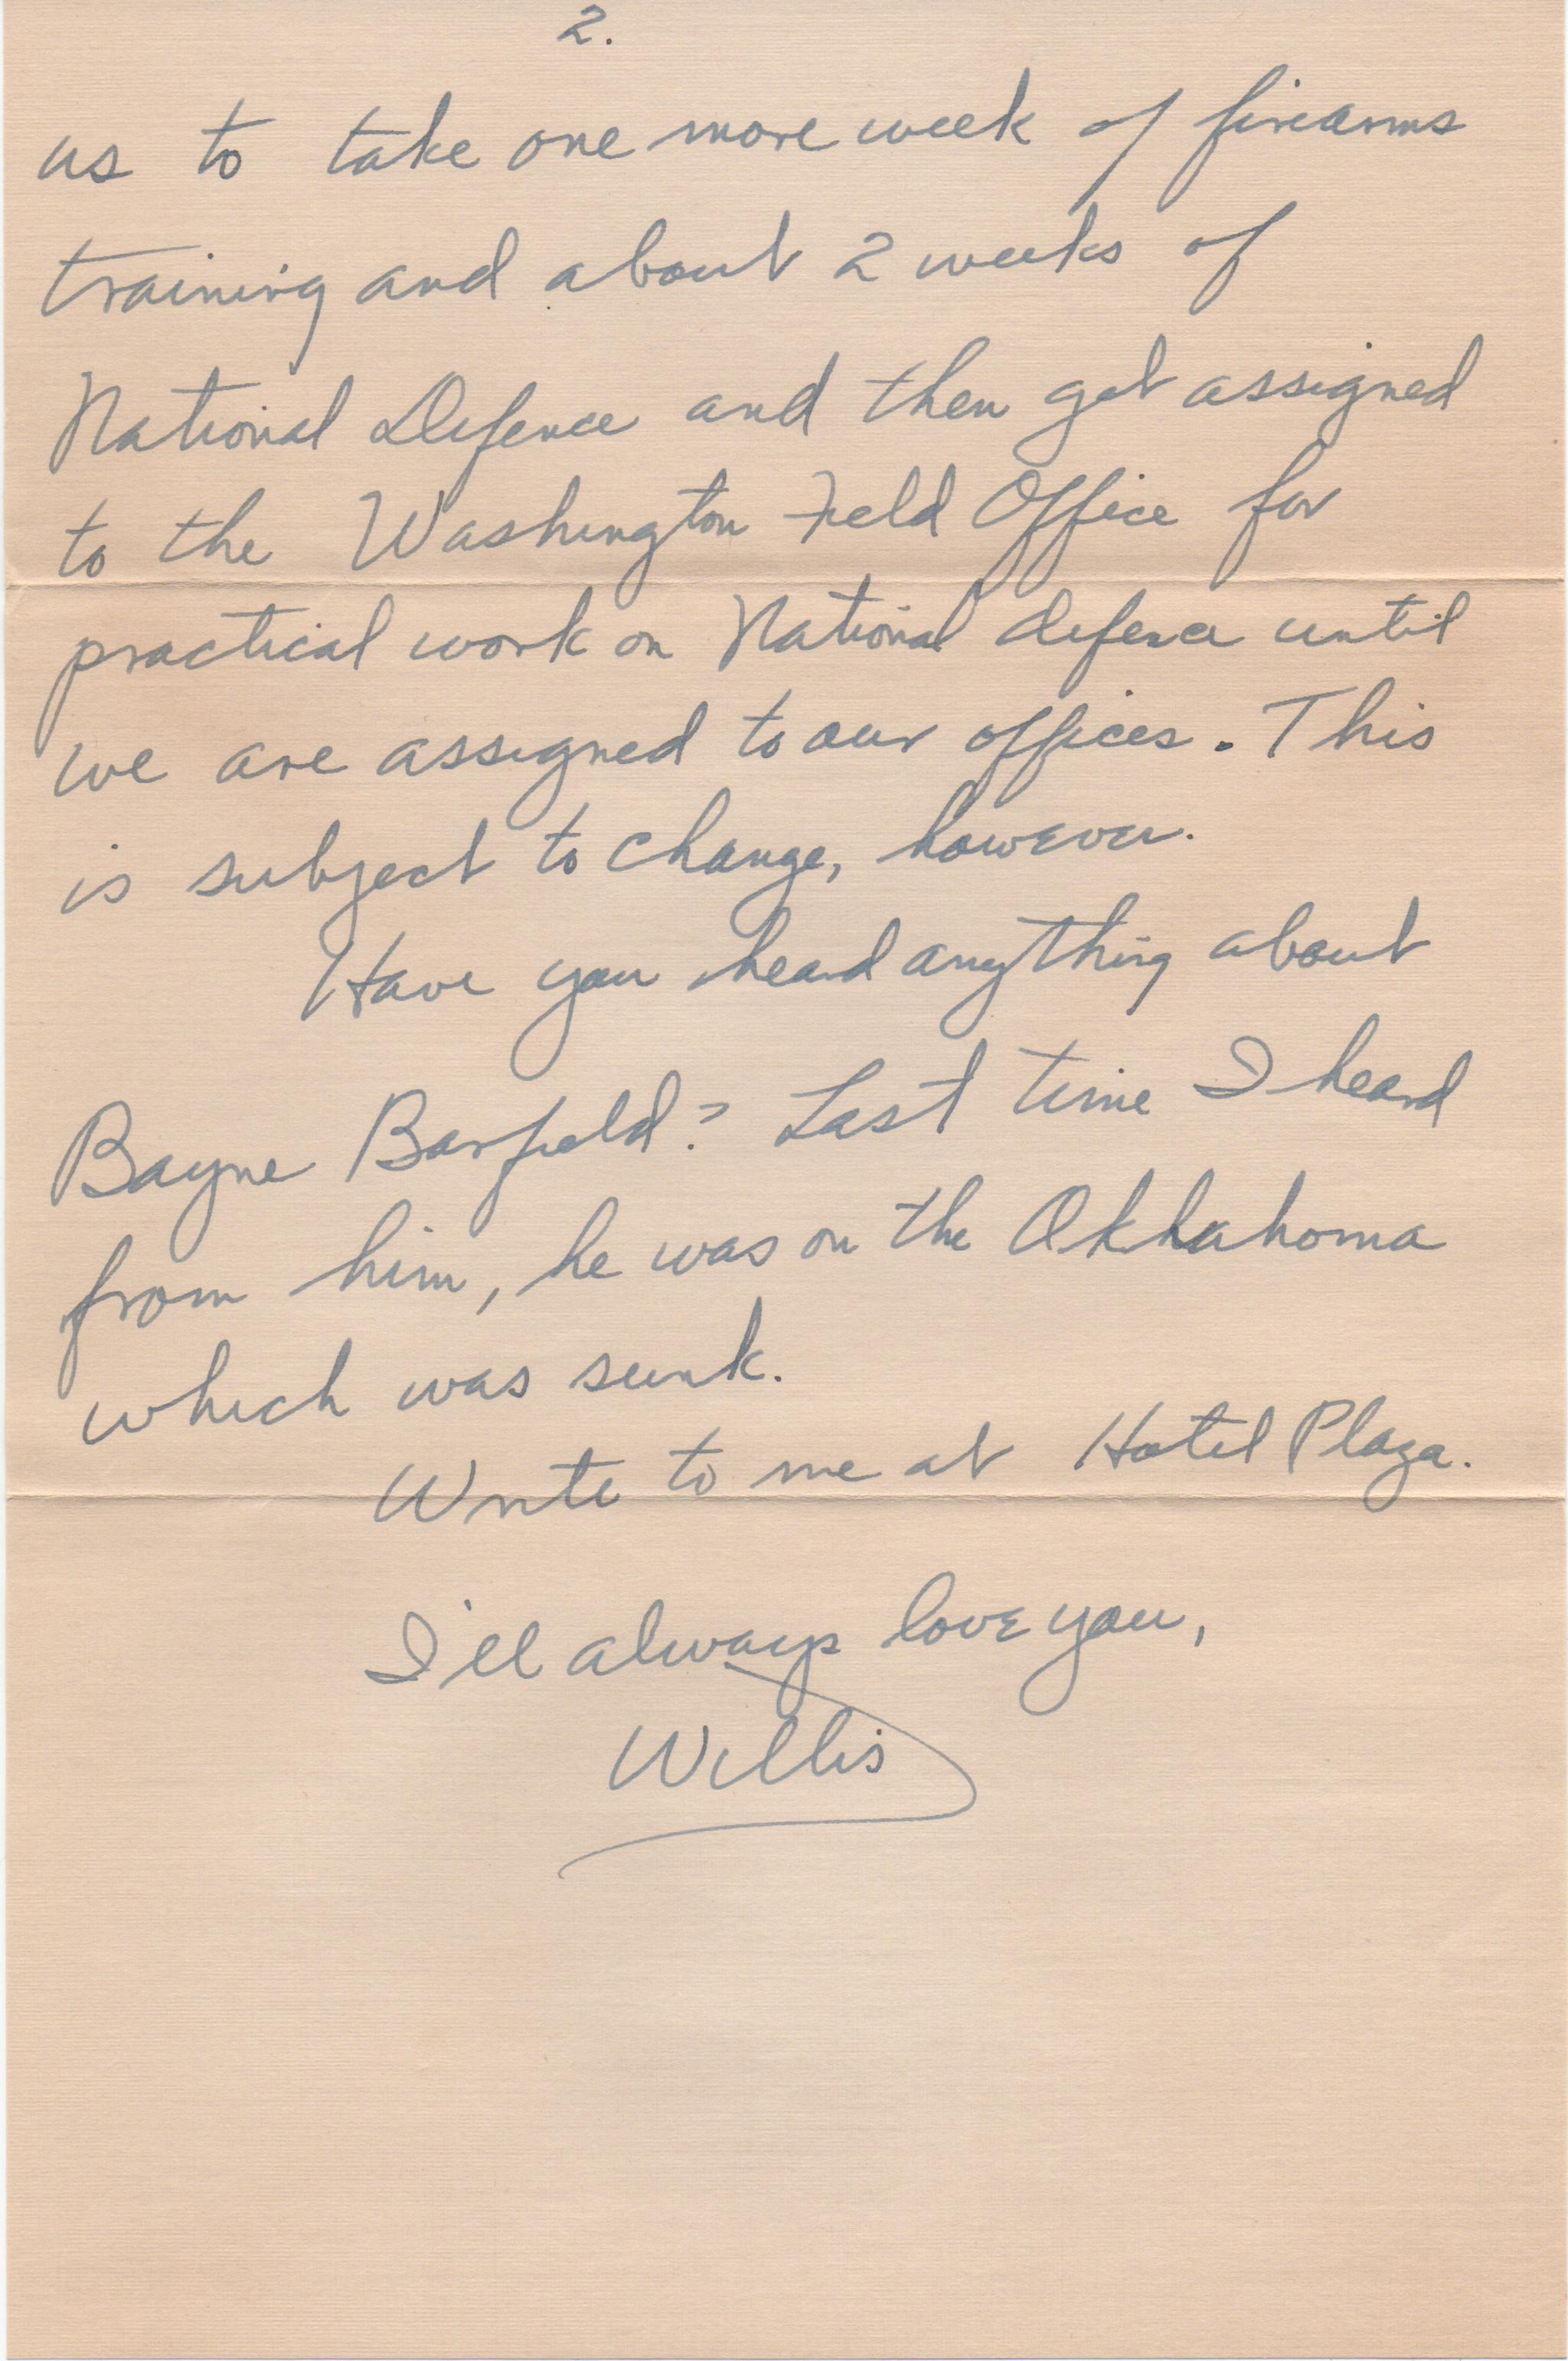 2.
us to take one more week of firearms
training and about 2 weeks of
National Defence and then get assigned
to the Washington Field Office for
practical work on National defence until
we are assigned to our offices. This
is subject to change, however.
Have you heard anything about
Bayne Barfield? Last time I heard
from him, he was on the Oklahoma
which was sunk.
Write to me at Hotel Plaza.
I'll always love you,
Willis